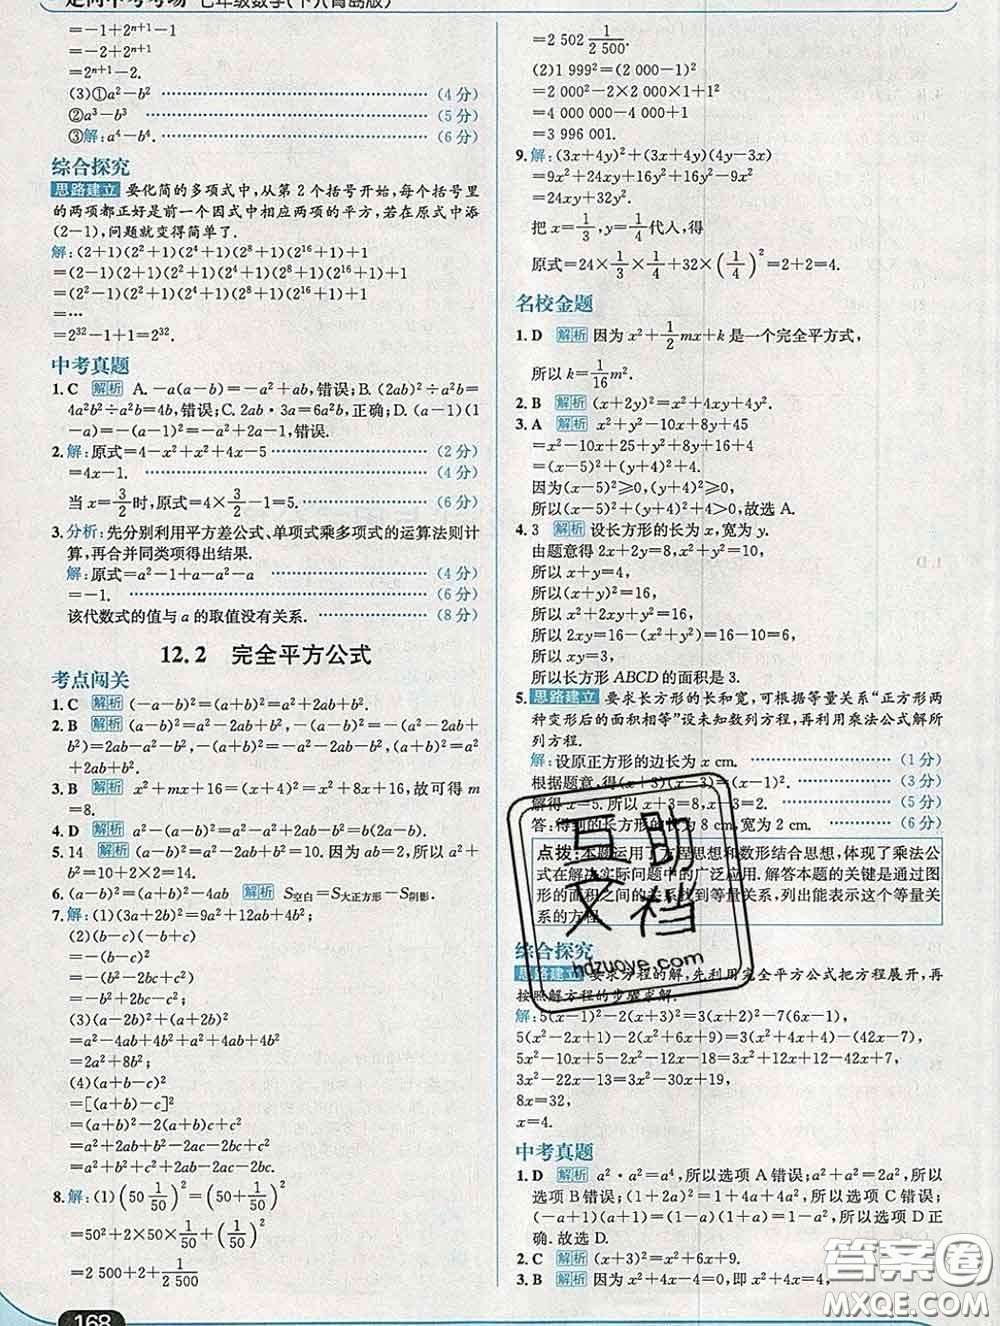 走向中考考场 七年级数学(下)(青岛版)
=−1+2ⁿ⁺¹−1
=−2+2ⁿ⁺¹
=2ⁿ⁺¹−2.
(3)①a²−b² (4分)
②a³−b³ (5分)
③解:a⁴−b⁴. (6分)
综合探究
思路建立 要化简的多项式中,从第2个括号开始,每个括号里
的两项都正好是前一个因式中相应两项的平方,若在原式中添
(2−1),问题就变得简单了.
解:(2+1)(2²+1)(2⁴+1)(2⁸+1)(2¹⁶+1)+1
=(2−1)(2+1)(2²+1)(2⁴+1)(2⁸+1)(2¹⁶+1)+1
=(2²−1)(2²+1)(2⁴+1)(2⁸+1)(2¹⁶+1)+1
=…
=2³²−1+1=2³².
中考真题
1.C 解析 A.−a(a−b)=−a²+ab,错误;B.(2ab)²÷a²b=
4a²b²÷a²b=4b,错误;C.2ab·3a=6a²b,正确;D.(a−1)(1
−a)=−(a−1)²=−a²+2a−1,错误.
2.解:原式=4−x²+x²+4x−5 (2分)
=4x−1. (4分)
当x=3/2时,原式=4×3/2−1=5. (6分)
3.分析:先分别利用平方差公式、单项式乘多项式的运算法则计
算,再合并同类项得出结果.
解:原式=a²−1+a−a²−a (4分)
=−1. (6分)
该代数式的值与a的取值没有关系. (8分)
12.2 完全平方公式
考点闯关
1.C 解析 (−a−b)²=(a+b)²=a²+2ab+b².
2.B 解析 (a−b)²=a²−2ab+b²,−(a−b)²=−(a²−2ab+
b²)=2ab−a²−b²,−(a+b)²=−a²−2ab−b²,(a+b)²=
a²+2ab+b².
3.B 解析 x²+mx+16=(x+4)²=x²+8x+16,故可得m
=8.
4.D 解析 a²−(a−b)²=a²−a²+2ab−b²=b(2a−b).
5.14 解析 (a−b)²=a²−2ab+b²=10.因为ab=2,所以a²+
b²=10+2×2=14.
6.(a−b)²=(a+b)²−4ab 解析 S空白=S大正方形−S阴影.
7.解:(1)(3a+2b)²=9a²+12ab+4b².
(2)(b−c)(−b+c)
=−(b−c)²
=−(b²−2bc+c²)
=−b²+2bc−c²;
(3)(a−2b)²+(a+2b)²
=a²−4ab+4b²+a²+4ab+4b²
=2a²+8b²;
(4)(a+b−c)²
=[(a+b)−c]²
=(a+b)²−2(a+b)c+c²
=a²+2ab+b²−2ac−2bc+c²
=a²+b²+c²+2ab−2ac−2bc.
8.解:(1)(50 1/50)²=(50+1/50)²
=50²+2×50×1/50+(1/50)²
=2 500+2+1/2 500
168
=2 502 1/2 500.
(2)1 999²=(2 000−1)²
=2 000²−2×2 000×1+1²
=4 000 000−4 000+1
=3 996 001.
9.解:(3x+4y)²+(3x+4y)(4y−3x)
=9x²+24xy+16y²+16y²−9x²
=24xy+32y².
把x=1/3,y=1/4代人,得
原式=24×1/3×1/4+32×(1/4)²=2+2=4.
名校金题
1.D 解析 因为x²+1/2mx+k是一个完全平方式,
所以k=1/16m².
2.B 解析 (x+2y)²=x²+4xy+4y².
3.A 解析 x²+y²−10x+8y+45
=x²−10x+25+y²+8y+16+4
=(x−5)²+(y+4)²+4.
因为(x−5)²≥0,(y+4)²≥0,
所以(x−5)²+(y+4)²+4>0,故选A.
4.3 解析 设长方形的长为x,宽为y.
由题意得2x+2y=8,x²+y²=10,
所以x+y=4,
所以(x+y)²=16,
所以x²+2xy+y²=16,
所以2xy=16−(x²+y²)=16−10=6,
所以xy=3,
所以长方形ABCD的面积是3.
5.思路建立 要求长方形的长和宽,可根据等量关系“正方形两
种变形后的面积相等”设未知数列方程,再利用乘法公式解所
列方程.
解:设原正方形的边长为x cm. (1分)
根据题意,得(x+3)(x−3)=(x−1)². (3分)
解得x=5.所以x+3=8,x−3=2. (5分)
答:得到的长方形的长为8 cm,宽为2 cm. (6分)
点拨:本题运用了方程思想和数形结合思想,体现了乘法公
式在解决实际问题中的广泛应用.解答本题的关键是通过图
形的面积之间的关系找到等量关系,列出能表示这个等量关
系的方程.
综合探究
思路建立 要求方程的解,先利用完全平方公式把方程展开,再
按照解方程的步骤求解.
解:5(x−1)²−2(x+3)²=3(x+2)²−7(6x−1),
5(x²−2x+1)−2(x²+6x+9)=3(x²+4x+4)−(42x−7),
5x²−10x+5−2x²−12x−18=3x²+12x+12−42x+7,
3x²−22x−13=3x²−30x+19,
8x=32,
x=4.
中考真题
1.D 解析 a²·a²=a⁴,所以选项A错误;a²+a²=2a²,所以
选项B错误;(1+2a)²=1+4a+4a²,所以选项C错误;
(−a+1)(a+1)=(1−a)(1+a)=1−a²,所以选项D正
确.故选D.
2.C 解析 (x+3)²=x²+6x+9.
3.B 解析 因为x²−4x−4=0,即x²−4x=4,
互助文档
hdzuoye.com
答案圈
MXQE.COM